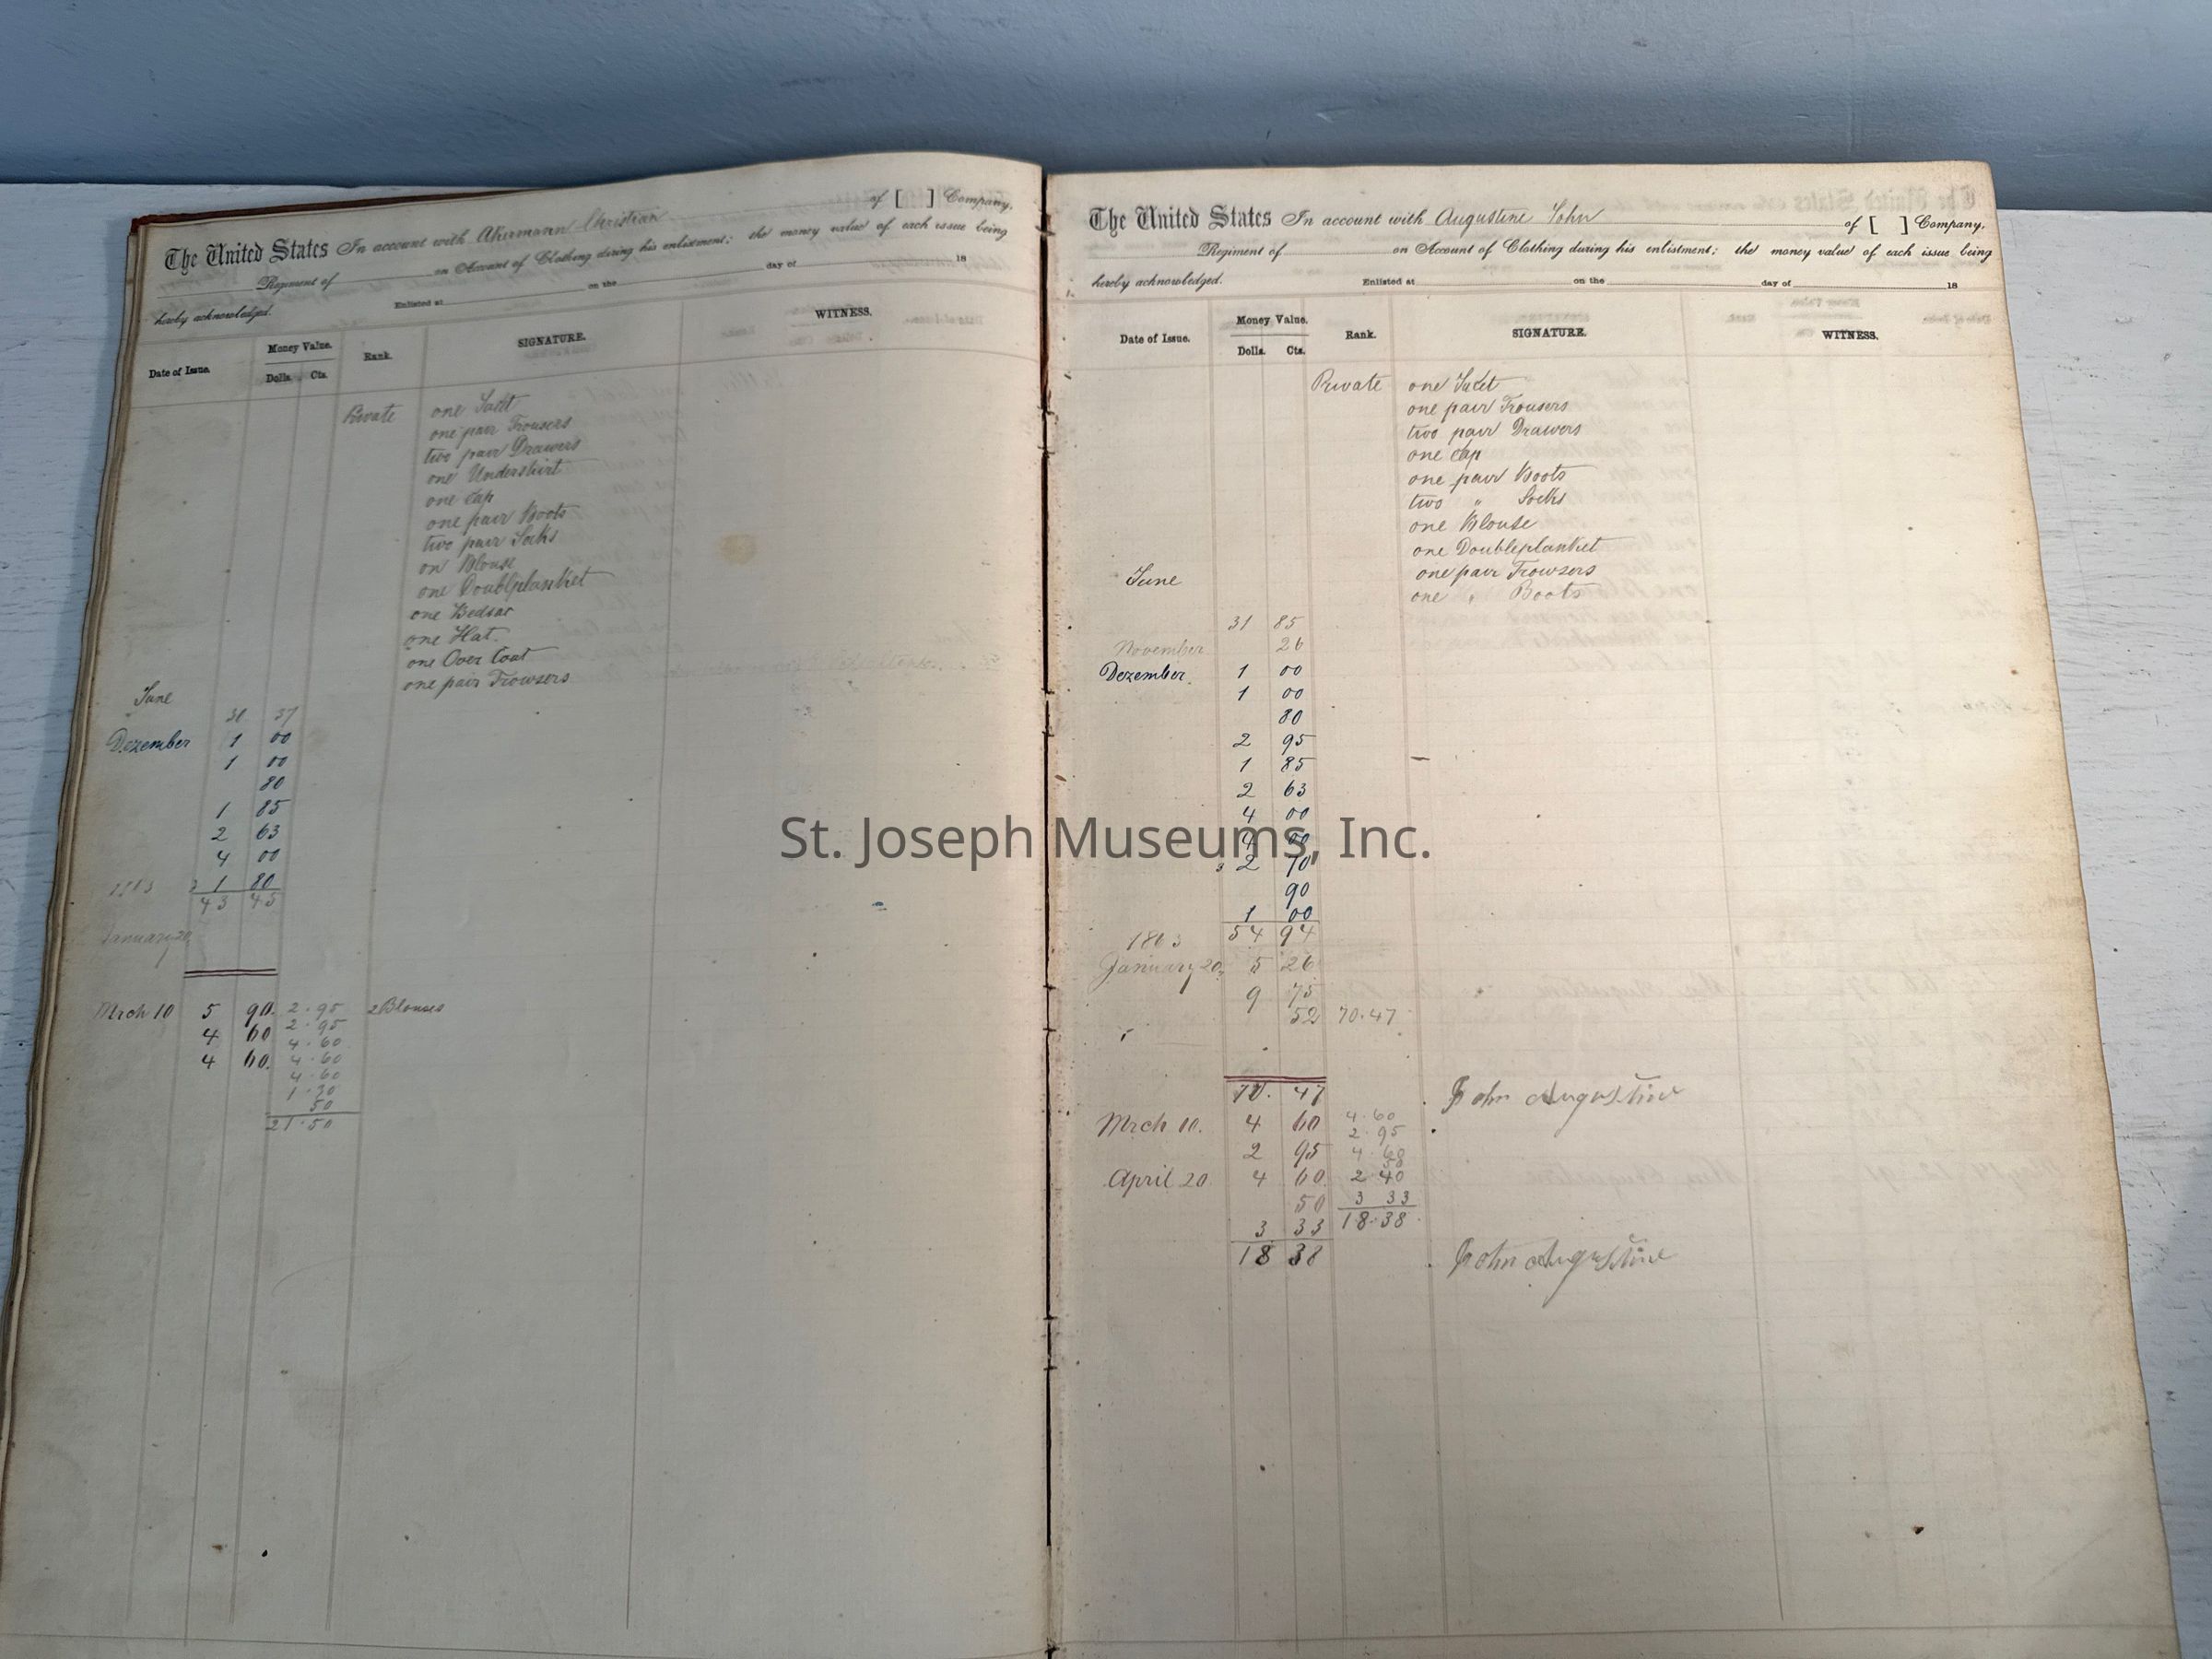 The United States In account with Akermann Christian of [ ] Company,
Regiment of on Account of Clothing during his enlistment; the money value of each issue being
hereby acknowledged. Enlisted at on the day of 18
Date of Issue. Money Value. Rank. SIGNATURE. WITNESS.
Dolls. Cts.
Private one Jacket
one pair Trousers
two pair Drawers
one Undershirt
one Cap
one pair Boots
two pair Socks
on Blouse
one Doublplanket
one Bedsac
one Hat.
one Over Coat
June one pair Trowsers
37
Dezember 1 00
1 00
80
1 85
2 63
4 00
1 80
43 45
January 20
Mrch 10 5 90. 2.95 2 Blouses
2.95
4 60 4.60
4 60. 4.60
4.60
50
21.50
The United States In account with Augustine John of [ ] Company,
Regiment of on Account of Clothing during his enlistment; the money value of each issue being
hereby acknowledged. Enlisted at on the day of 18
Date of Issue. Money Value. Rank. SIGNATURE. WITNESS.
Dolls. Cts.
Private one Jacket
one pair Trousers
two pair Drawers
one Cap
one pair Boots
two " Socks
one Blouse
one Doubleplanket
June one pair Trowsers
one " Boots
31 85
November 26
Dezember. 1 00
1 00
80
2 95
1 85
2 63
4 00
4 00
2 70
90
1 00
1863 54 94
January 20. 5 26
9 75
52 70.47
70. 47 John Augustine
Mrch 10. 4 60 4.60
2.95
2 95
April 20 4 60. 2 40
50 3 33
3 33 18.38
18 38 John Augustine
St. Joseph Museums, Inc.